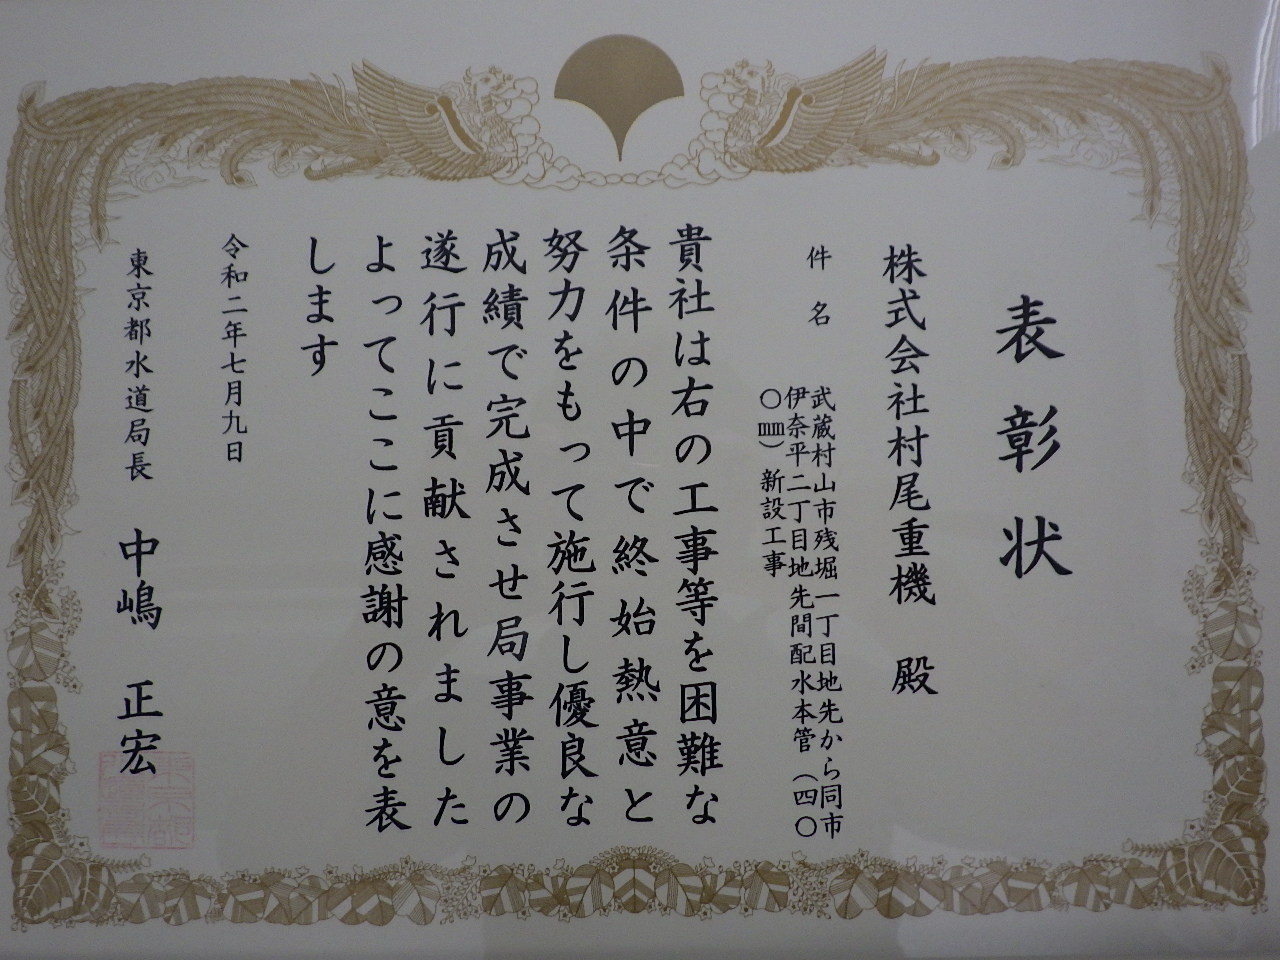 表彰状
株式会社村尾重機 殿
件名 武蔵村山市残堀一丁目地先から同市
伊奈平二丁目地先間配水本管（四〇
〇㎜）新設工事
貴社は右の工事等を困難な
条件の中で終始熱意と
努力をもって施行し優良な
成績で完成させ局事業の
遂行に貢献されました
よってここに感謝の意を表
します
令和二年七月九日
東京都水道局長 中嶋 正宏